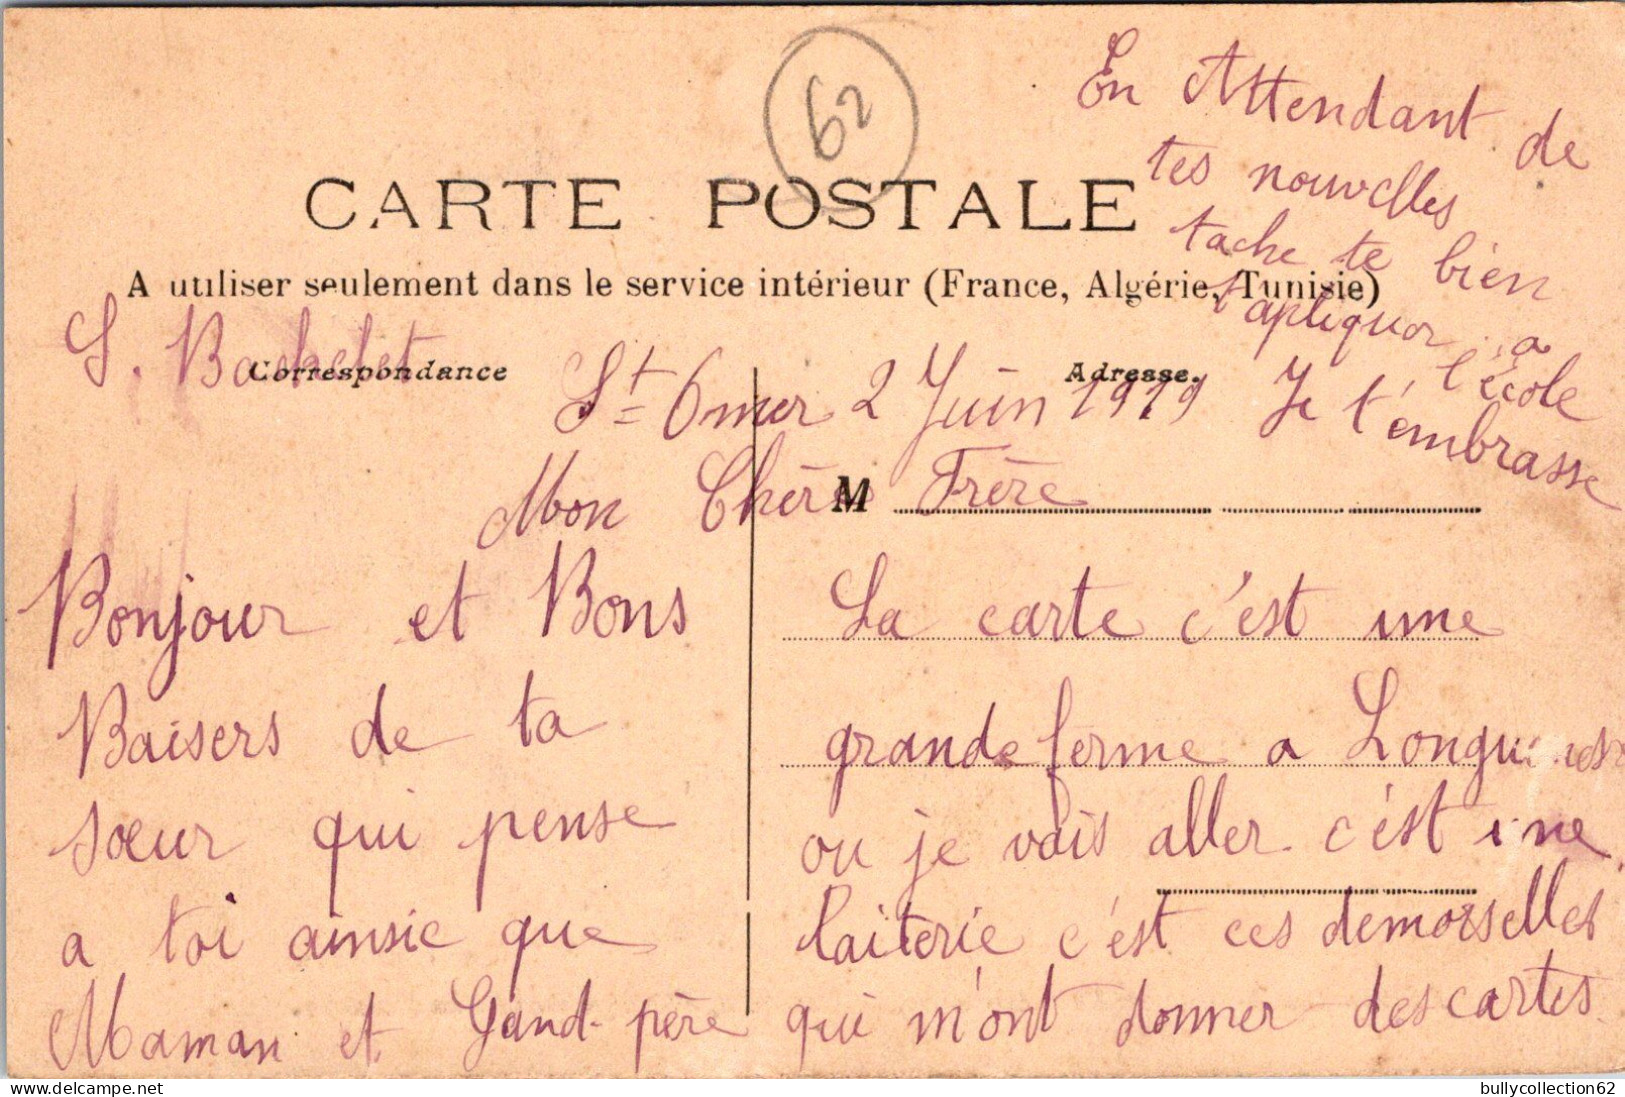 62
En Attendant de
tes nouvelles
tache te bien
t'apliquer a
l'école
Je t'embrasse
CARTE POSTALE
A utiliser seulement dans le service intérieur (France, Algérie, Tunisie)
S. Bachelet
Correspondance
Adresse.
St Omer 2 Juin 1919
Mon Chère Frère
M
Bonjour et Bons
Baisers de ta
sœur qui pense
a toi ainsie que
Maman et Gand-père
La carte c'est une
grande ferme a
ou je vais aller c'est une
laiterie c'est ces demoiselles
qui m'ont donner des cartes.
bullycollection62